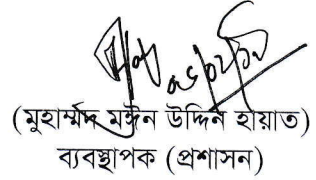 (মুহাম্মদ মঈন উদ্দিন হায়াত)
ব্যবস্থাপক (প্রশাসন)